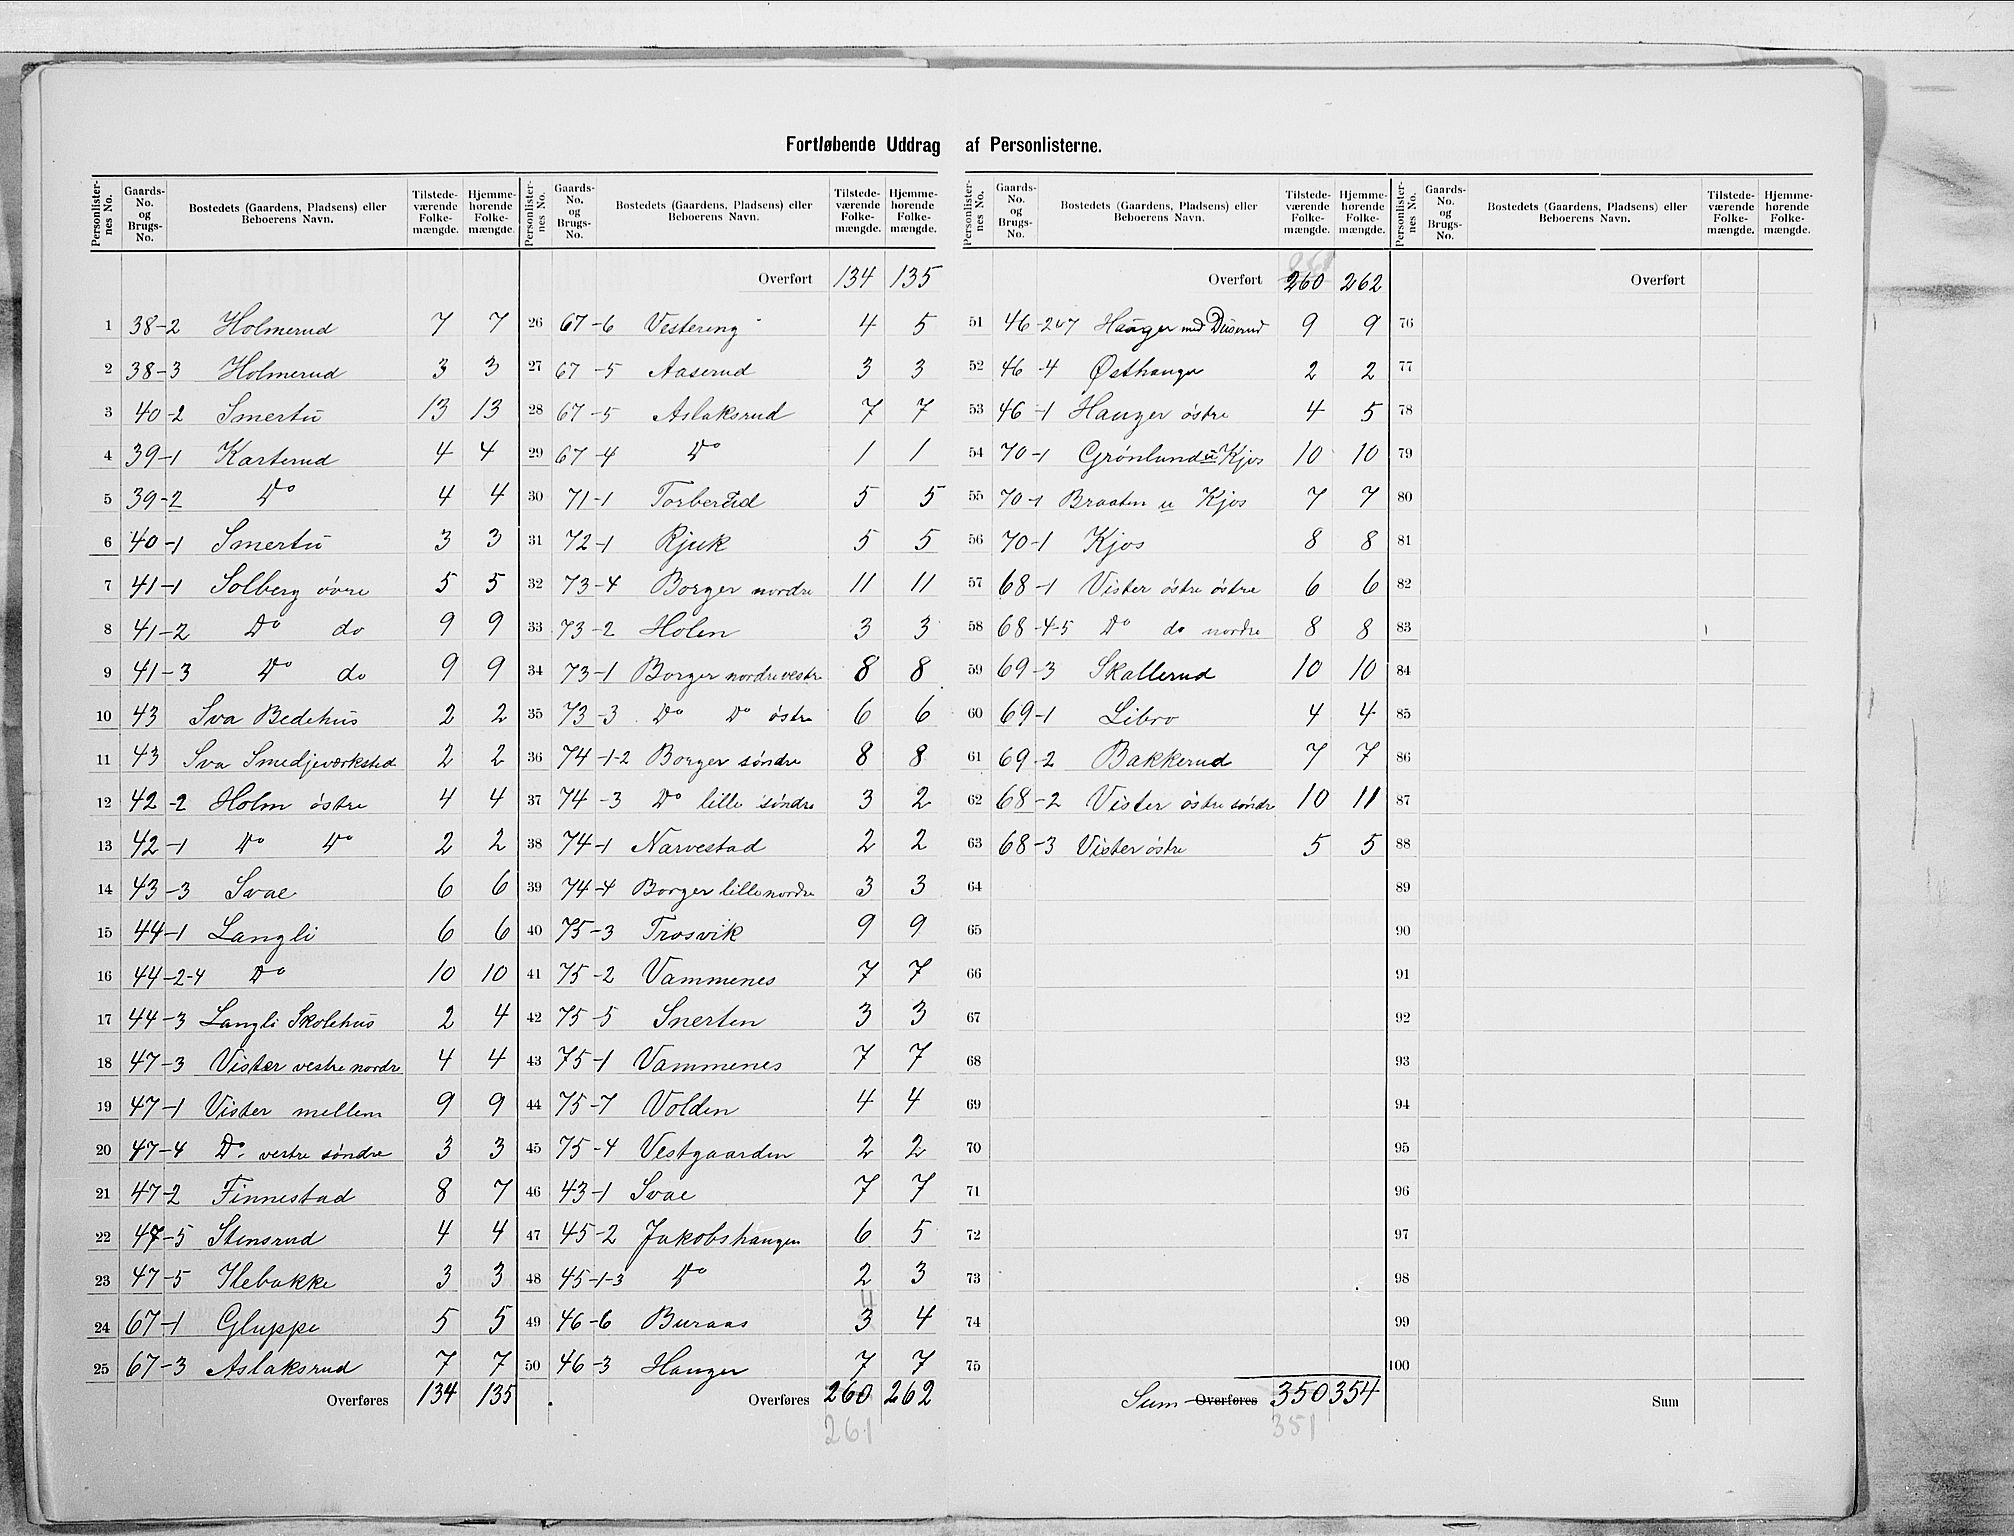 Fortløbende Uddrag af Personlisterne.
Personlister-nes No. | Gaards-No. og Brugs-No. | Bostedets (Gaardens, Pladsens) eller Beboerens Navn. | Tilstede-værende Folke-mængde. | Hjemme-hørende Folke-mængde.
1 38-2 Holmerud 7 7
2 38-3 Holmerud 3 3
3 40-2 Smertu 13 13
4 39-1 Karterud 4 4
5 39-2 Do 4 4
6 40-1 Smertu 3 3
7 41-1 Solberg övre 5 5
8 41-2 Do do 9 9
9 41-3 Do do 9 9
10 43 Sva Bedehus 2 2
11 43 Sva Smedjeværksted 2 2
12 42-2 Holm östre 4 4
13 42-1 Do Do 2 2
14 43-3 Svae 6 6
15 44-1 Langli 6 6
16 44-2-4 Do 10 10
17 44-3 Langli Skolehus 2 4
18 47-3 Vister vestre nordre 4 4
19 47-1 Vister mellem 9 9
20 47-4 Do. vestre söndre 3 3
21 47-2 Finnestad 8 7
22 47-5 Stensrud 4 4
23 47-5 Ilebakke 3 3
24 67-1 Gluppe 5 5
25 67-3 Aslaksrud 7 7
Overføres 134 135
Personlister-nes No. | Gaards-No. og Brugs-No. | Bostedets (Gaardens, Pladsens) eller Beboerens Navn. | Tilstede-værende Folke-mængde. | Hjemme-hørende Folke-mængde.
Overført 134 135
26 67-6 Vestereng 4 5
27 67-5 Aaserud 3 3
28 67-5 Aslaksrud 7 7
29 67-4 Do 1 1
30 71-1 Torbertid 5 5
31 72-1 Rjuk 5 5
32 73-4 Borger nordre 11 11
33 73-2 Holen 3 3
34 73-1 Borger nordre vestre 8 8
35 73-3 Do Do östre 6 6
36 74-1-2 Borger söndre 8 8
37 74-3 Do lille söndre 3 2
38 74-1 Narvestad 2 2
39 74-4 Borger lille nordre 3 3
40 75-3 Trosvik 9 9
41 75-2 Vammenes 7 7
42 75-5 Snerten 3 3
43 75-1 Vammenes 7 7
44 75-7 Volden 4 4
45 75-4 Vestgaarden 2 2
46 43-1 Svae 7 7
47 45-2 Jakobshaugen 6 5
48 45-1-3 Do 2 3
4
49 46-6 Buraas 3 4
50 46-3 Hauger 7 7
Overføres 260 262
261
Personlister-nes No. | Gaards-No. og Brugs-No. | Bostedets (Gaardens, Pladsens) eller Beboerens Navn. | Tilstede-værende Folke-mængde. | Hjemme-hørende Folke-mængde.
261
Overført 260 262
51 46-2 Hauger med Duserud 9 9
52 46-4 Østhauger 2 2
53 46-1 Hauger östre 4 5
54 70-1 Grönlund u Kjos 10 10
55 70-1 Braaten u Kjos 7 7
56 70-1 Kjos 8 8
57 68-1 Vister östre östre 6 6
58 68-4-5 Do do nordre 8 8
59 69-3 Skallerud 10 10
60 69-1 Libro 4 4
61 69-2 Bakkerud 7 7
62 68-2 Vister östre söndre 10 11
63 68-3 Vister östre 5 5
64
65
66
67
68
69
70
71
72
73
74
75
Sum Overføres 350 354
351
Personlister-nes No. | Gaards-No. og Brugs-No. | Bostedets (Gaardens, Pladsens) eller Beboerens Navn. | Tilstede-værende Folke-mængde. | Hjemme-hørende Folke-mængde.
Overført
76
77
78
79
80
81
82
83
84
85
86
87
88
89
90
91
92
93
94
95
96
97
98
99
100
Sum